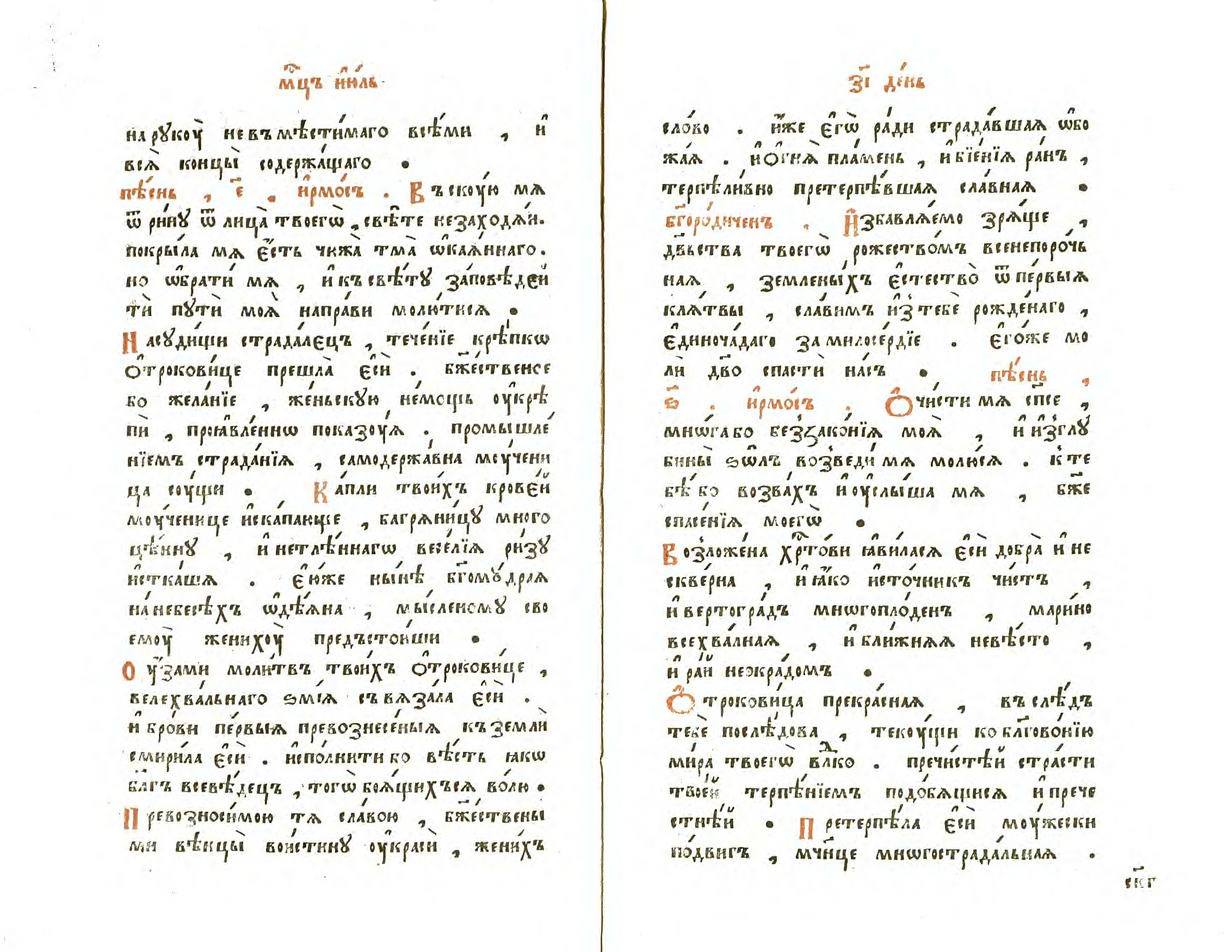 мц҃ъ і҆ю́ль
на рꙋкꙋ̀ невъмѣсти́маго всѣ́ми , и҆
всѧ̀ концы̀ содержа́щаго .
пѣ́снь , є҃ . і҆рмо́съ . Въскꙋ́ю мѧ
ѿри́нꙋ ѿ лица̀ твоегѡ̀ , свѣ́те незаходѧ́и .
покры́ла мѧ є҆́сть чюжа̀ тма̀ ѡ҆каѧ́ннаго .
но ѡ҆брати́ мѧ , и҆ къ свѣ́тꙋ за́повѣдей
тѝ пꙋтѝ моѧ̀ напра́ви молю́тисѧ .
На сꙋди́щи страда́лецъ , тече́нїе крѣ́пкѡ
ѻ҆трокови́це прешла̀ є҆сѝ . бж҃ественое
бо жела́нїе , же́ньскꙋю не́мощь ᲂу҆крѣ
пѝ , проꙗвле́ннѡ пока́зꙋѧ . промышле́
нїемъ страда́нїѧ , самодержа́вна мꙋчени
ца сꙋ́щи . Ка́пли твои́хъ крове́й
мꙋ́ченице и҆скапа́ющїе , багрѧни́цꙋ много
цѣ́ннꙋ , и҆ нетлѣ́ннагѡ весе́лїѧ ри́зꙋ
и҆стка́шѧ . є҆ю́же ны́нѣ бг҃омꙋ́драѧ
на небесѣ́хъ ѡ҆дѣ́ѧна , мы́сленомꙋ сво
емꙋ̀ женихꙋ̀ предъстои́ши .
Оу҆́зами моли́твъ твои́хъ ѻ҆трокови́це ,
велехва́льнаго ѕмі́ѧ съвѧза́ла є҆сѝ .
и҆ бро́ви пе́рвыѧ превознесе́ныѧ , къ землѝ
смири́ла є҆сѝ . и҆сполни́ти бо вѣ́сть ꙗ҆́кѡ
бл҃гъ всевѣ́децъ , тогѡ̀ боѧ́щихъсѧ во́лю .
Превозноси́мою тѧ сла́вою , бж҃ествены
ми вѣнцы̀ вои́стинꙋ ᲂу҆красѝ , жени́хъ
з҃і де́нь
сло́во . и҆́же є҆гѡ̀ ра́ди страда́вшаѧ ѡ҆бо
жа́ѧ . и҆ ѻ҆гнѧ̀ пла́мень , и҆ бїе́нїѧ ра́нъ ,
терпѣли́вно претерпѣ́вшаѧ сла́внаѧ .
бг҃оро́диченъ . И҆збавлѧ́емо зрѧ́ще ,
дв҃ьства твоегѡ̀ рожество́мъ всенепоро́чь
наѧ , земленых̀ъ є҆стество̀ ѿ пе́рвыѧ
клѧ́твы , сла́вимъ и҆з̾ тебѐ рожде́наго ,
є҆диноча́даго за милосе́рдїе . є҆го́же мо
лѝ дв҃о спастѝ на́съ . пѣ́снь ,
ѕ҃ . і҆рмо́съ . Ѻ҆чи́сти мѧ сп҃се ,
мнѡ́га бо беззако́нїѧ моѧ̀ , и҆ и҆зглꙋ
бины̀ ѕѡ́лъ возведи́ мѧ молю́сѧ . к̾ те
бѣ́ бо возва́хъ и҆ ᲂу҆слы́ша мѧ , бж҃е
спасе́нїѧ моегѡ̀ .
Возложе́на хрⷭ҇то́ви ꙗ҆ви́ласѧ є҆сѝ добра̀ и҆ не
скве́рна , и҆ ꙗ҆́ко и҆сто́чникъ чи́стъ ,
и҆ вертогра́дъ мнѡгопло́денъ , мари́но
всехва́лнаѧ , и҆ бли́жнѧѧ невѣ́сто ,
и҆ ра́й неѻкра́домъ .
Ѻ҆трокови́ца прекра́снаѧ , въ слѣ́дъ
тебѐ послѣ́дова , текꙋ́щи ко бл҃гово́нїю
ми́ра твоегѡ̀ влⷣко . пречи́стѣй стра́сти
твое́й терпѣ́нїемъ подо́бѧщисѧ и҆ прече
стнѣ́й . Претерпѣ́ла є҆сѝ мꙋ́жески
по́двигъ , мч҃нице мнѡгострада́льнаѧ .
ск҃г